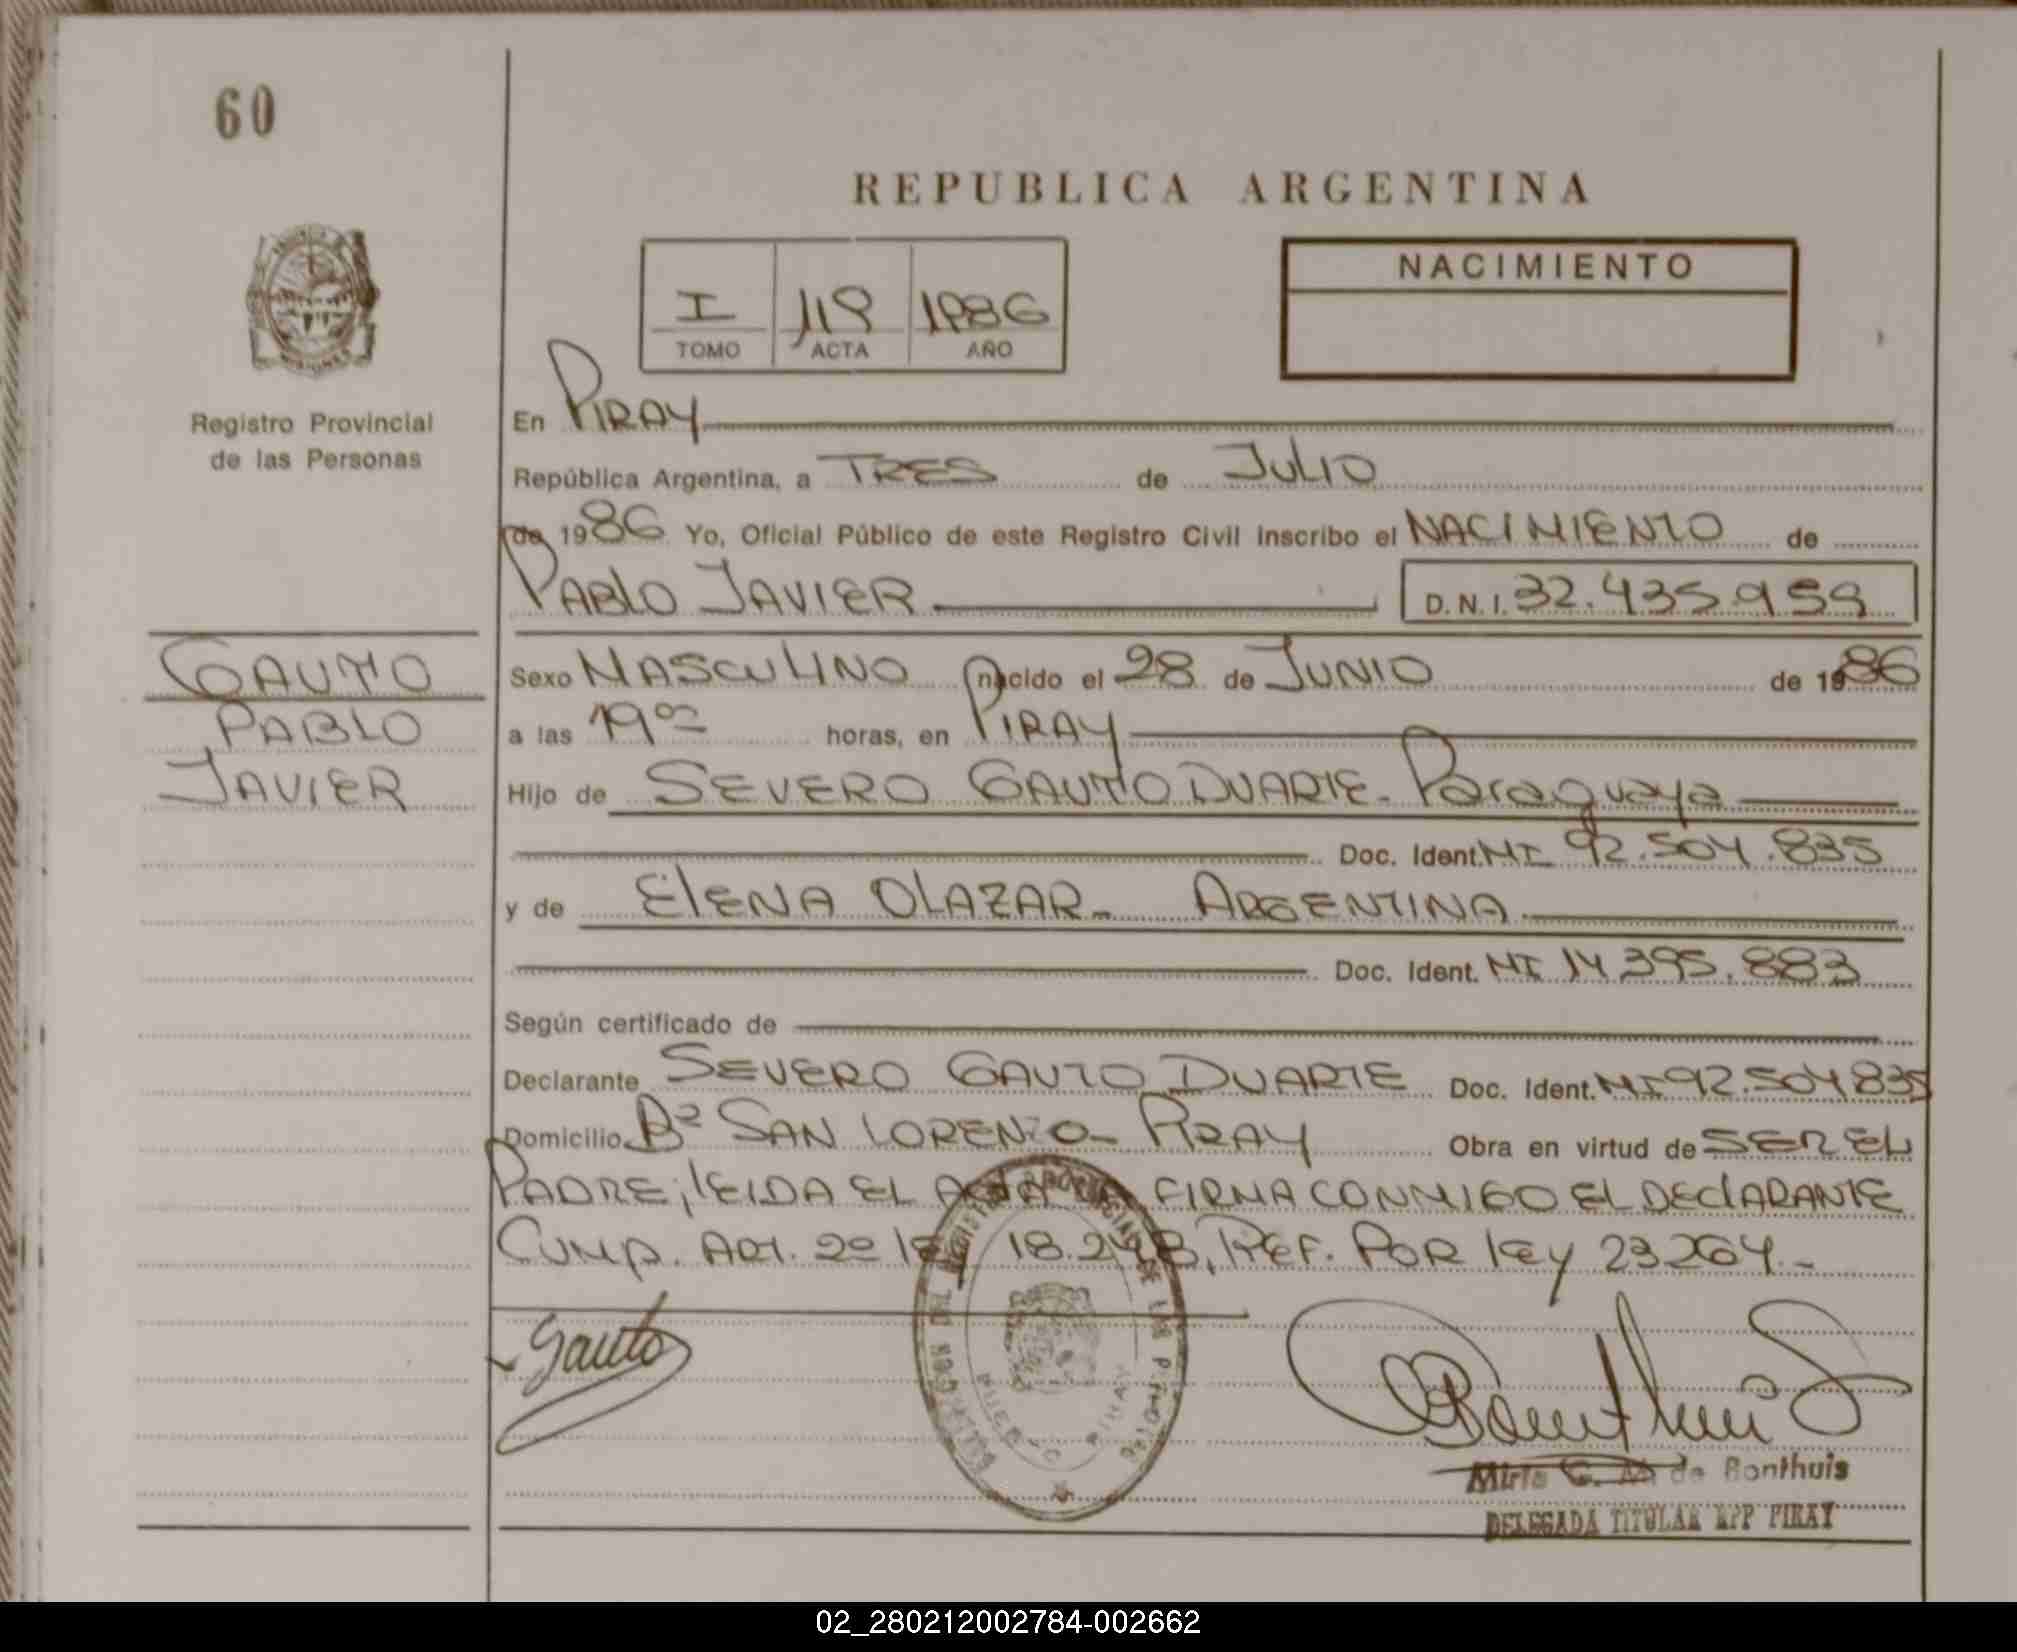 60
REPUBLICA ARGENTINA
NACIMIENTO
I 119 1986
TOMO ACTA AÑO
Registro Provincial
de las Personas
En PIRAY
República Argentina, a TRES de JULIO
de 1986 Yo, Oficial Público de este Registro Civil inscribo el NACIMIENTO de
PABLO JAVIER D.N.I. 32.435.959
GAUTO
PABLO
JAVIER
Sexo MASCULINO nacido el 28 de JUNIO de 1986
a las 19 00 horas, en PIRAY
Hijo de SEVERO GAUTO DUARTE - Paraguaya
Doc. Ident. MI 92.504.835
y de ELENA OLAZAR - ARGENTINA
Doc. Ident. MI 14 395.883
Según certificado de
Declarante SEVERO GAUTO DUARTE Doc. Ident. MI 92.504 835
Domicilio Bº SAN LORENZO - PIRAY Obra en virtud de SER EL
PADRE; LEIDA EL ACTA FIRMA CONMIGO EL DECLARANTE
CUMP. ART. 2º 18.248, REF. POR LEY 23264.-
Gauto
Bonthuis
Mirta G. M de Bonthuis
DELEGADA TITULAR RPP PIRAY
REGISTRO PROVINCIAL DE LAS PERSONAS
PUERTO PIRAY
02_280212002784-002662